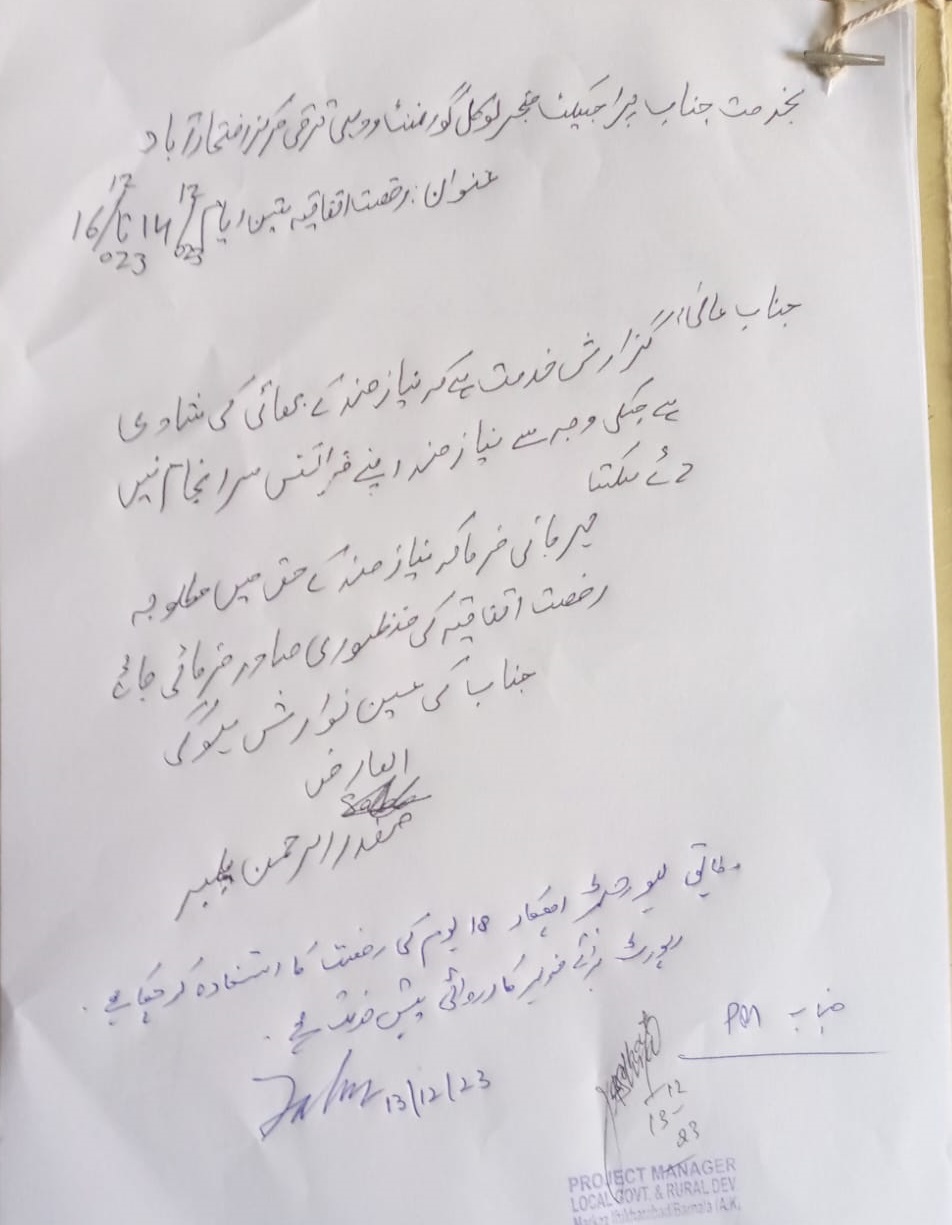 بخدمت جناب پراجیکٹ منیجر لوکل گورنمنٹ و دیہی ترقی مرکز افتخارآباد
عنوان: رخصت اتفاقیہ تین ایام 14/12/023 تا 16/12/023
جناب عالی!
گزارش خدمت ہے کہ نیازمند کے بھائی کی شادی
ہے جسکی وجہ سے نیازمند اپنے فرائض سرانجام نہیں
دے سکتا
مہربانی فرما کر نیازمند کے حق میں مطلوبہ
رخصت اتفاقیہ کی منظوری صادر فرمائی جائے
جناب کی عین نوازش ہوگی
العارض
صفدر الرحمن
رپورٹ اہلکار 18 یوم کی رخصت کا استفادہ کر چکا ہے۔
رپورٹ برائے مزید کارروائی پیش خدمت ہے۔
جناب PM
13/12/23
12
13-
23
PROJECT MANAGER
LOCAL GOVT. & RURAL DEV
Markaz Iftikharabad Barnala (A.K)